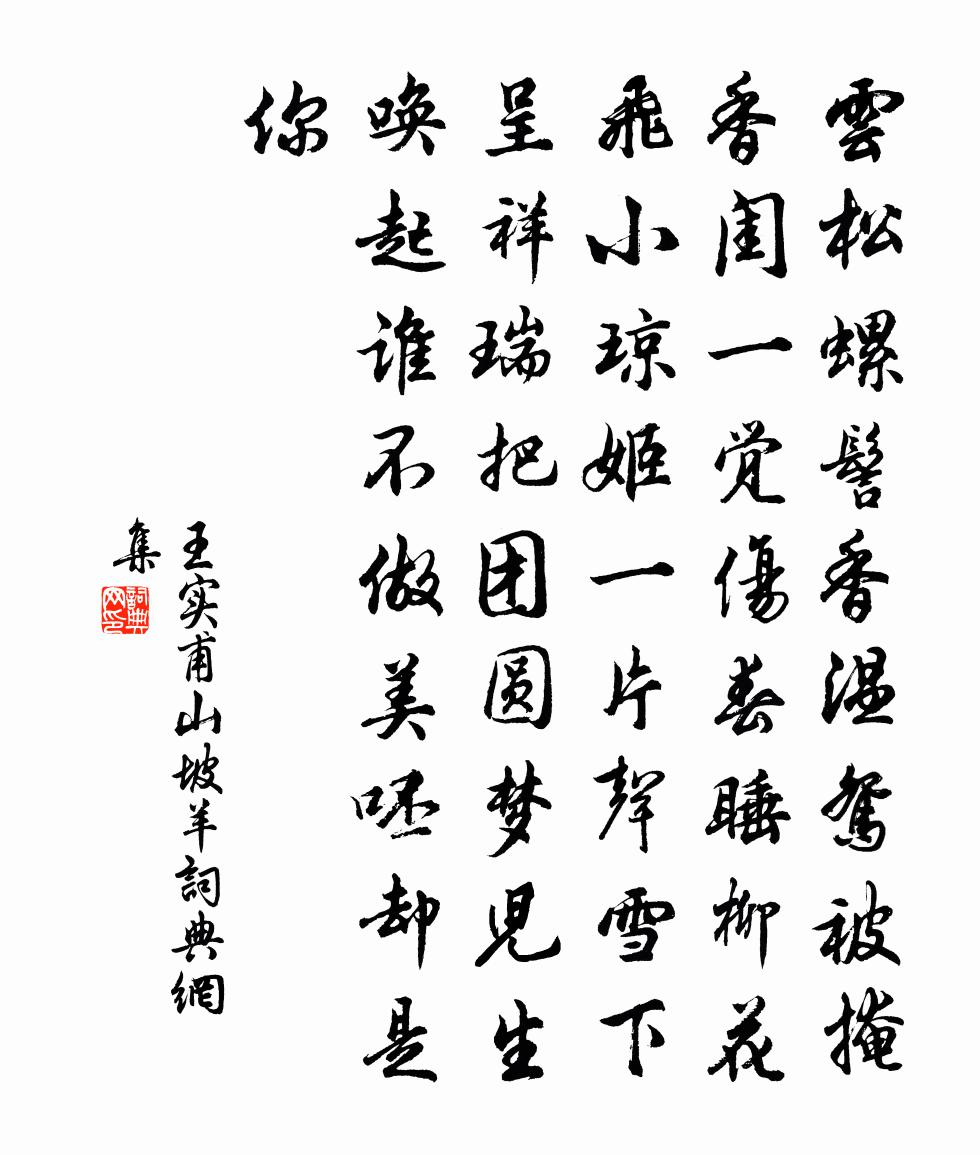 雲松螺髻香温鸳被掩
香闺一觉傷春睡柳花
飛小琼姬一片聲雪下
呈祥瑞把团圆梦児生
唤起谁不做美呸却是
你
王实甫山坡羊詞典網
集
詞典网印